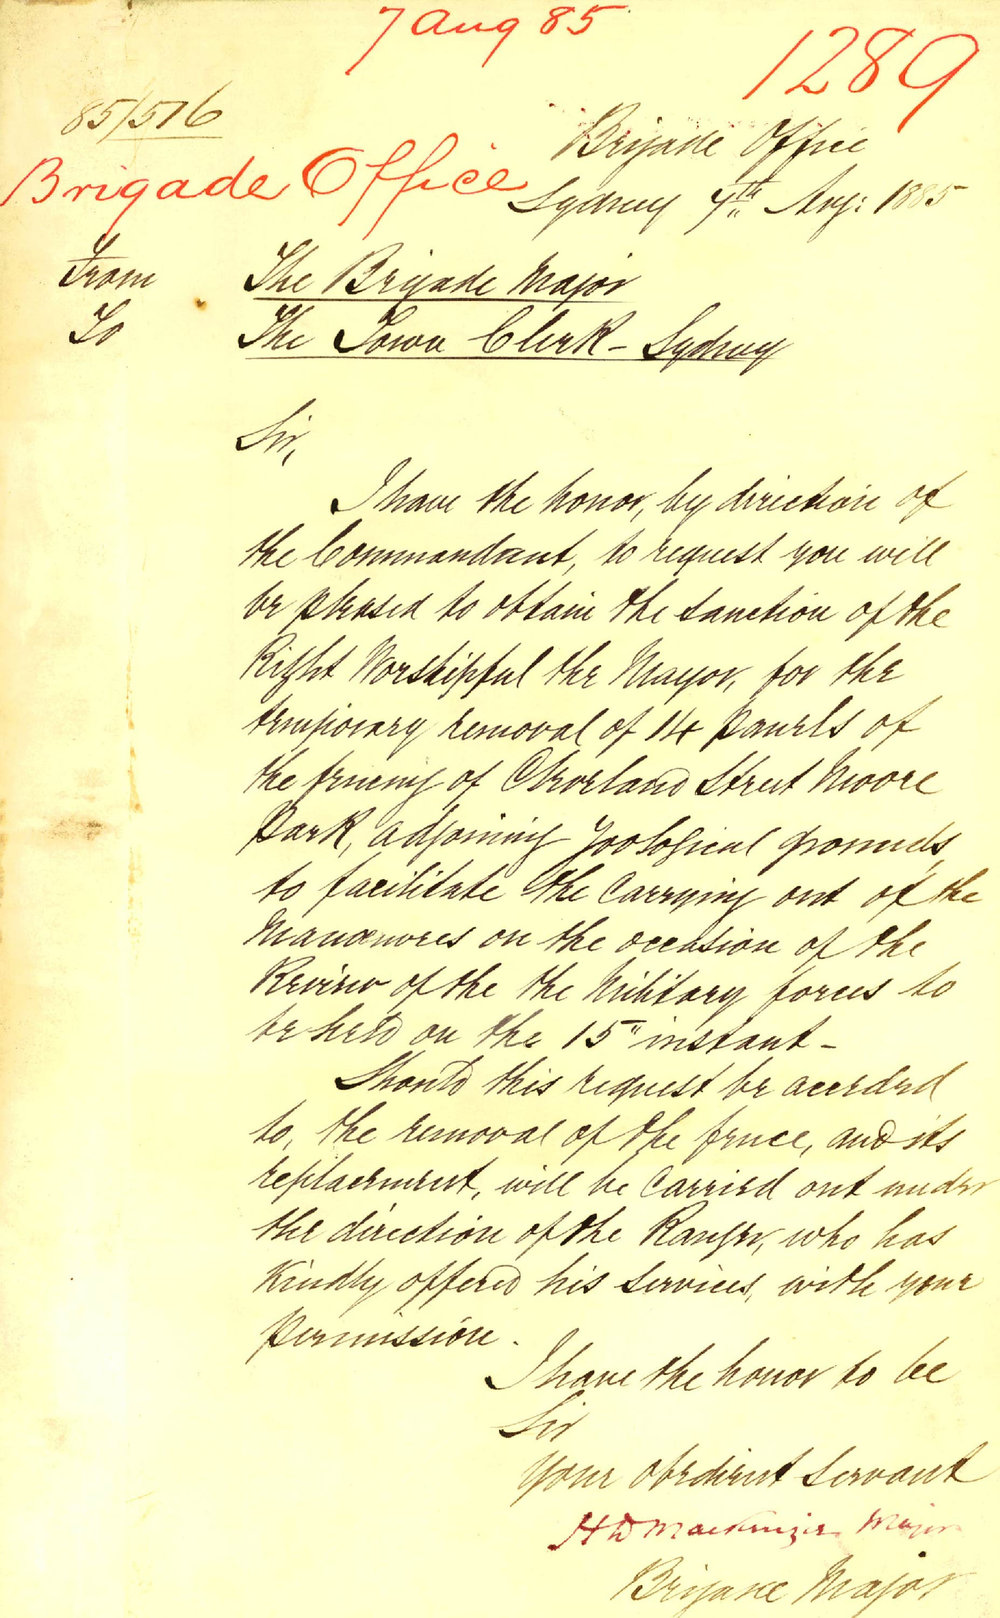 7 Aug 85
1289
85/516
Brigade Office
Brigade Office
Sydney 7th Aug: 1885
From The Brigade Major
To The Town Clerk - Sydney
Sir,
I have the honor, by direction of
the Commandant, to request you will
be pleased to obtain the sanction of the
Right Worshipful the Mayor, for the
temporary removal of 14 panels of
the fencing of Cleveland Street Moore
Park, adjoining Zoological grounds,
to facilitate the carrying out of the
Manœuvres on the occasion of the
Review of the the Military forces to
be held on the 15" instant -
Should this request be acceded
to, the removal of the fence, and its
replacement, will be carried out under
the direction of the Ranger, who has
kindly offered his services, with your
permission.
I have the honor to be
Sir
Your obedient servant
H D Mackenzie Major
Brigade Major